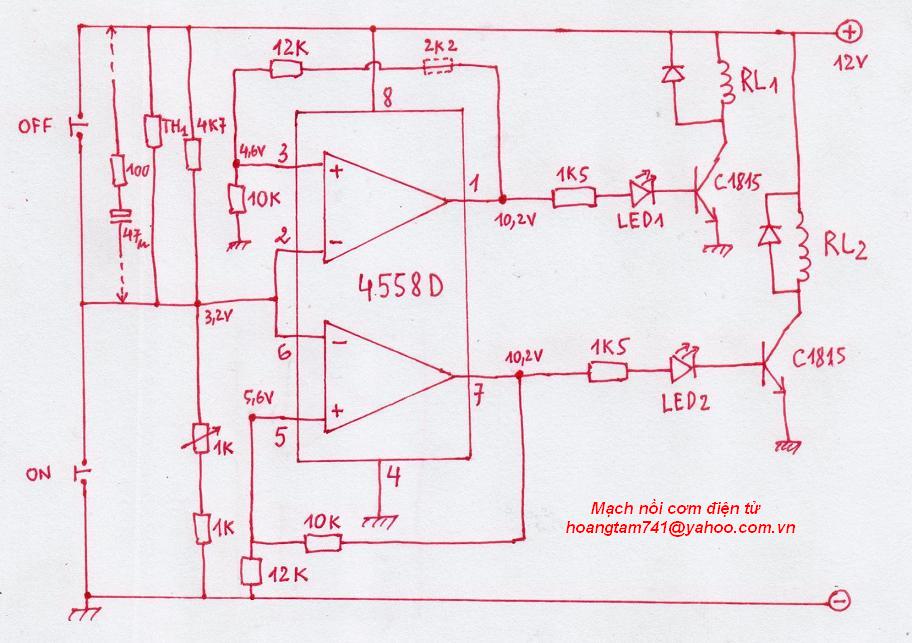 12K
2K2
+
12V
8
RL1
OFF
TH1
4K7
4,6V
3
100
10K
+
1
1K5
C1815
10,2V
LED1
47µ
2
−
4558D
RL2
3,2V
6
−
10,2V
1K5
C1815
7
LED2
5,6V
+
5
1K
ON
4
Mạch nồi cơm điện tử
hoangtam741@yahoo.com.vn
1K
10K
12K
−